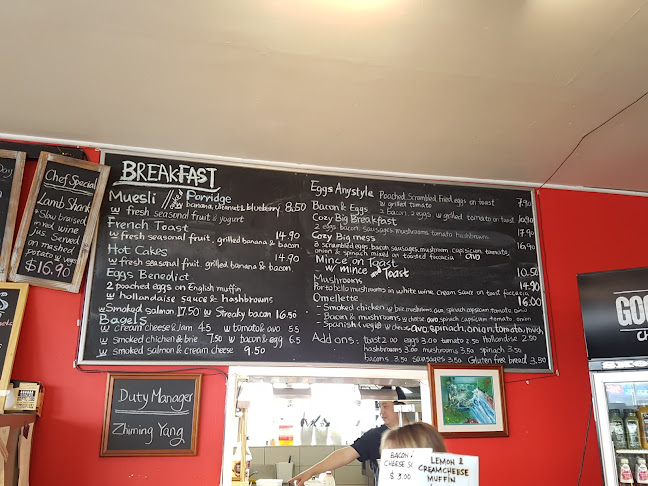 Day
Chef Special
Lamb Shank
Slow braised
red wine
Jus. Served
on mashed
potato w veges
$16.90
BREAKFAST
Muesli // Porridge
banana, coconut, blueberry 8.50
w fresh seasonal fruit & yogurt
French Toast
w fresh seasonal fruit, grilled banana & bacon 14.90
Hot Cakes
w fresh seasonal fruit, grilled banana & bacon 14.90
Eggs Benedict
2 poached eggs on English muffin
w hollandaise sauce & hashbrowns
w Smoked salmon 17.50 w Streaky bacon 16.50
Bagels
w cream cheese & Jam 4.5 w tomato & avo 5.5
w smoked chicken & brie 7.50 w bacon & egg 6.5
w smoked salmon & cream cheese 9.50
Eggs Anystyle Poached Scrambled Fried eggs on toast 7.90
w grilled tomato
Bacon & Eggs 2 bacon, 2 eggs w grilled tomato on toast 10.90
Cozy Big Breakfast
2 eggs bacon sausages mushroom tomato hashbrowns 17.90
Cozy Big mess 16.90
3 scrambled eggs, bacon, sausages, mushroom, capsicum, tomato,
onion & spinach mixed on toasted foccacia
Mince on Toast
w mince and Toast 10.50
Mushrooms 14.90
Portobello mushrooms in white wine cream sauce on toast foccacia
Omellette 16.00
- Smoked chicken w brie mushroom, avo, spinach, capsicum tomato, onion
- Bacon & mushrooms w cheese, avo, spinach, capsicum, tomato, onion
- Spanish & vegie w cheese avo, spinach, onion, tomato, mush
Add ons: toast 2.00 eggs 3.00 tomato 2.50 Hollandise 2.50
hashbrowns 3.00 mushrooms 3.50 spinach 3.50
bacons 3.50 sausages 3.50 Gluten free bread 3.50
Duty Manager
Zhiming Yang
BACON &
CHEESE
$3.00
LEMON &
CREAMCHEESE
MUFFIN